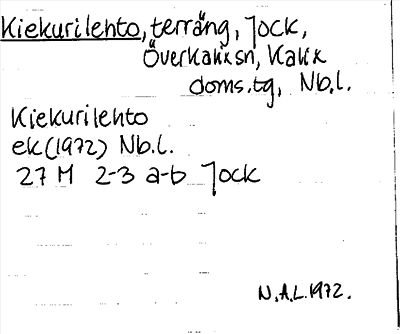 Kiekurilehto, terräng, Jock,
Överkalix sn, Kalix
doms.tg, Nb.l.
Kiekurilehto
ek(1972) Nb.l.
27 M 2-3 a-b Jock
N.A.L.1972.